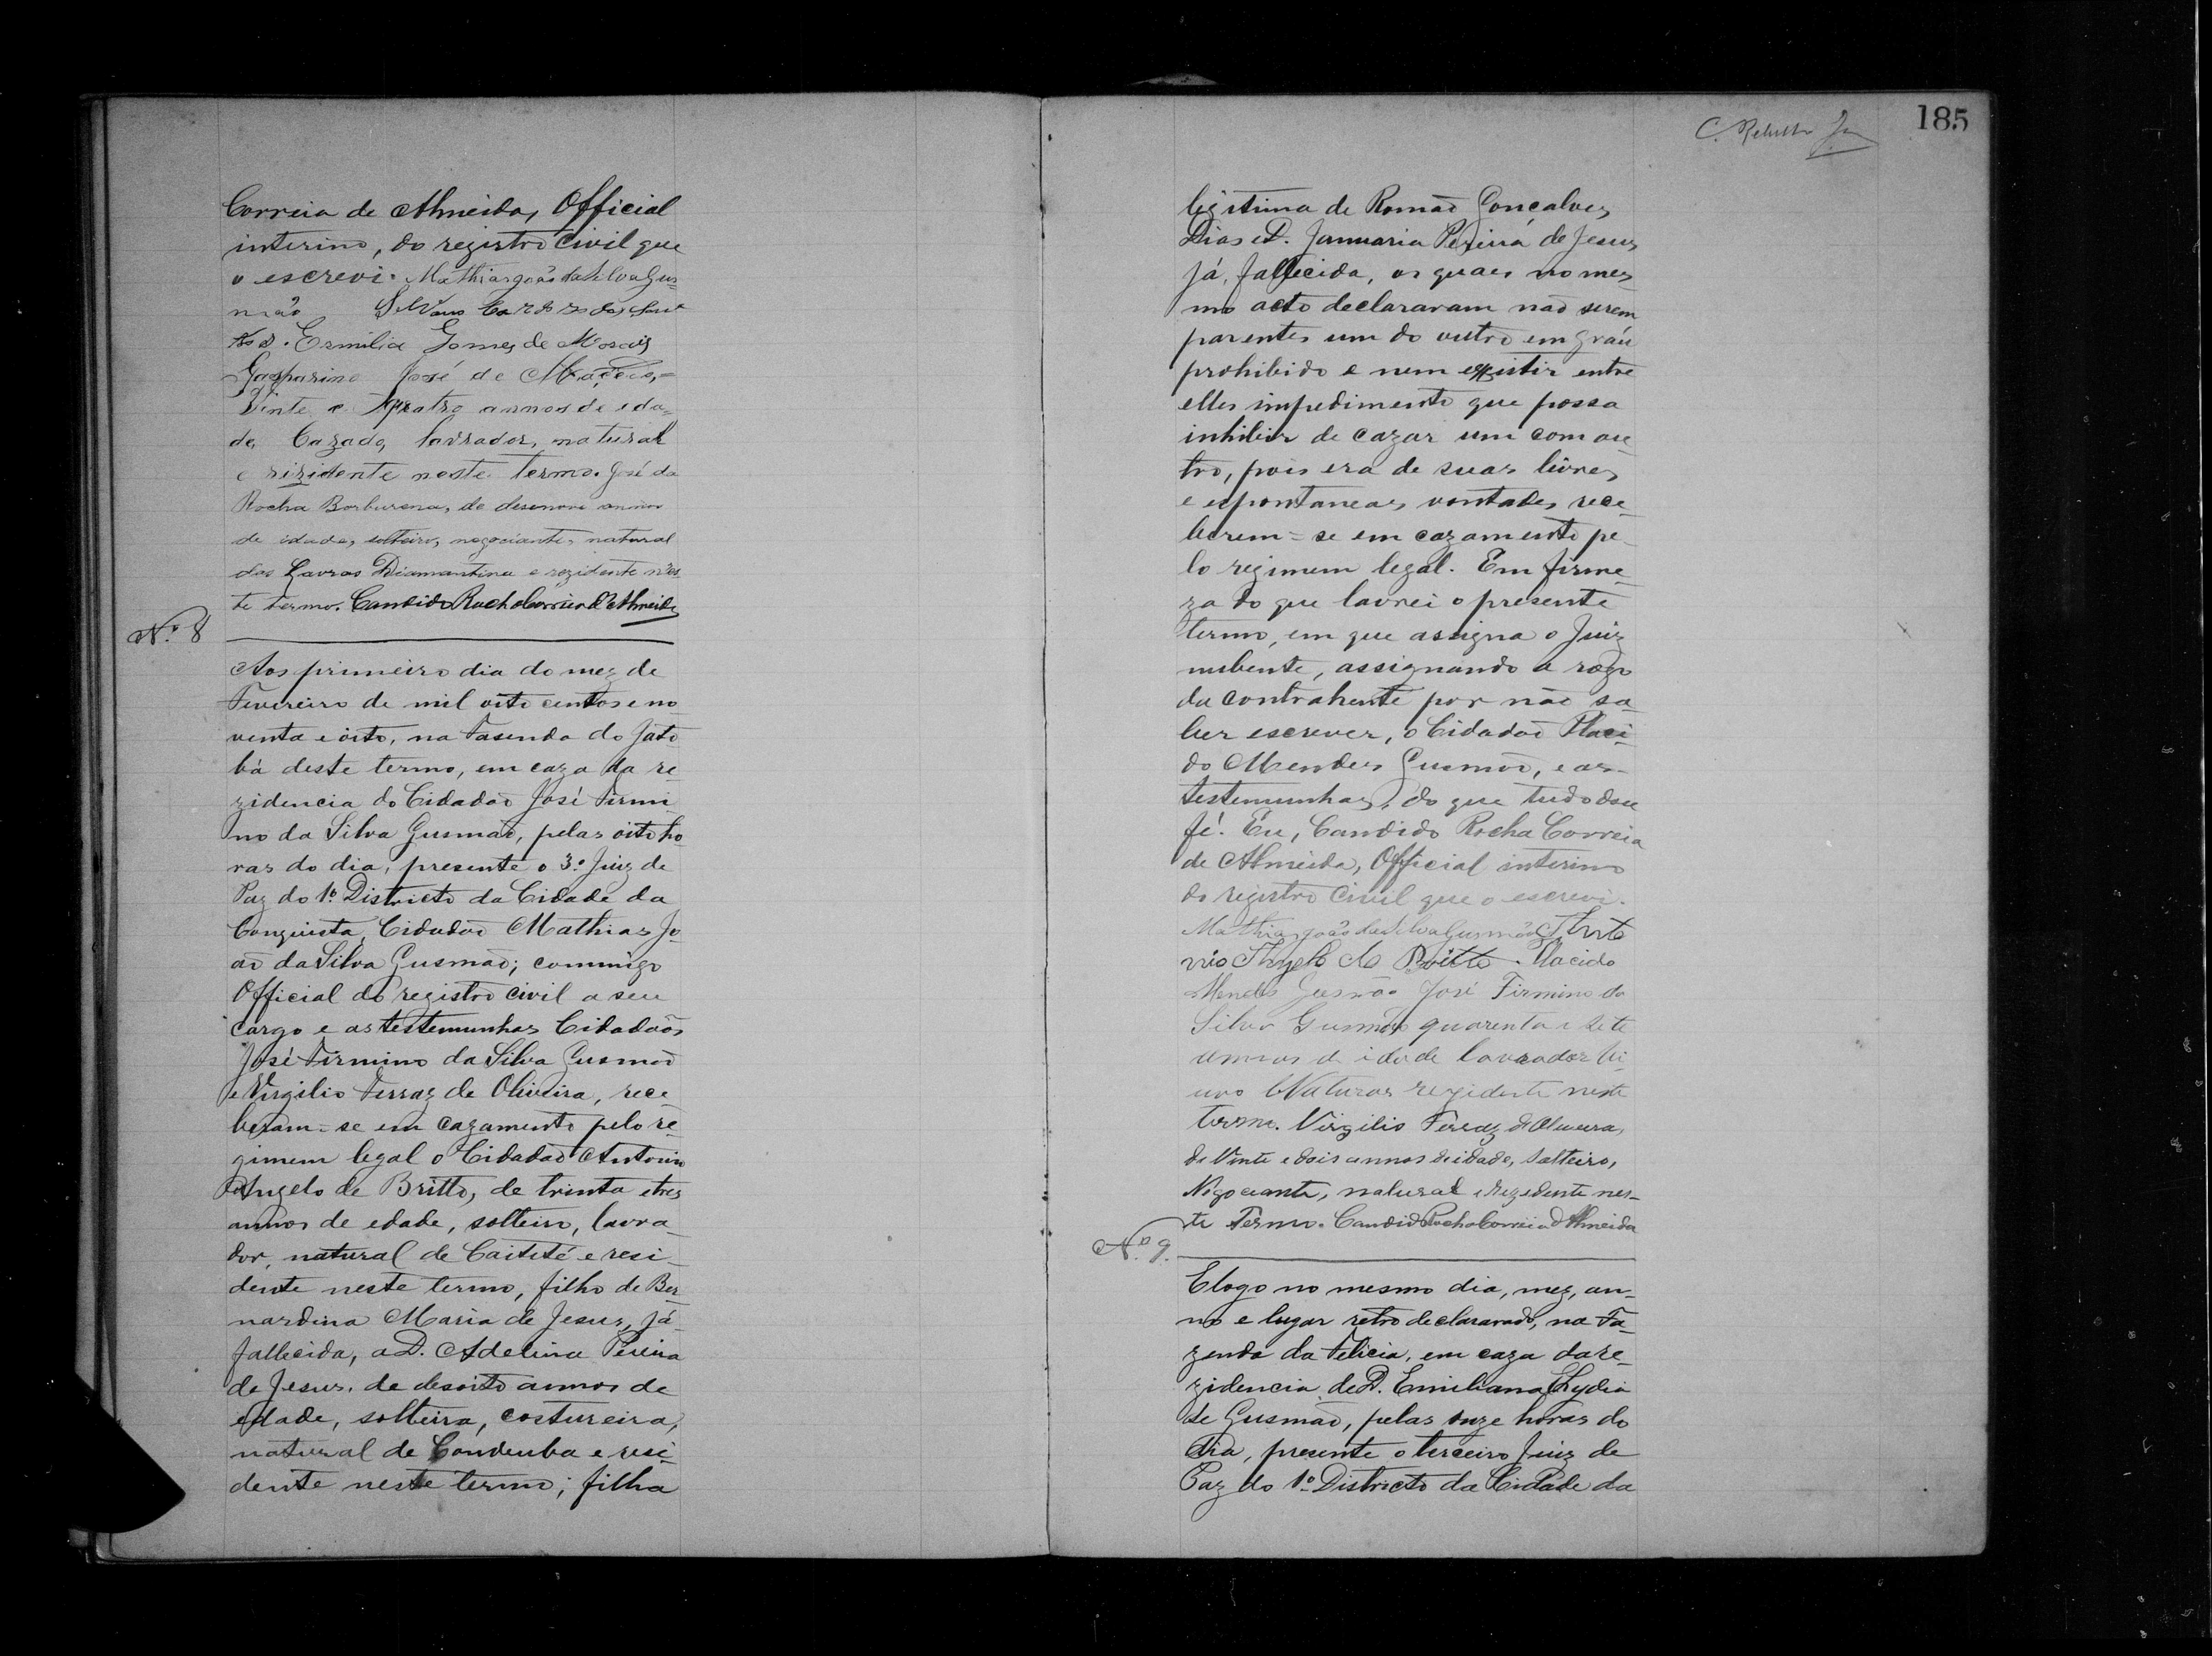 Correia de Almeida, Official
interino, do registro Civil que
o escrevi. Mathias João da Silva Gus-
mão Silvano Cardozo dos San
tos. Ermilia Gomes de Moraiz
Gasparino José de Macedo,=
Vinte e quatro annos de eda-
de, Cazado, lavrador, natural
e rizidente neste termo. José da
Rocha Borburema, de desenove annos
de idade, solteiro, negociante, natural
das Lavras Diamantina e rezidente n'es
te termo. Candido Rocha Correia d'Almeida
Nº 8
Aos primeiro dia do mez de
Fevereiro de mil oito centos e no
venta e oito, na Fasenda do Jato
bá deste termo, em caza da re
zidencia do Cidadaõ José Firmi
no da Silva Gusmaõ, pelas oito ho
ras do dia, presente o 3º Juiz de
Paz do 1º Districto da Cidade da
Conquista, Cidadaõ Mathias Jo
aõ da Silva Gusmaõ; commigo
Official do registro civil a seu
cargo e as testemunhas Cidadaõs
José Firmino da Silva Gusmaõ
e Virgilio Ferraz de Oliveira, rece
beram=se em cazamento pelo re
gimem legal o Cidadaõ Antonio
Angelo de Britto, de trinta e tres
annos de edade, solteiro, lavra
dor, natural de Caiteté e resi
dente neste termo, filho de Ber
nardina Maria de Jesus, já
fallecida, a D. Adelina Pereira
de Jesus, de desoito annos de
edade, solteira, costureira,
natural de Condeuba e resi
dente neste termo; filha
185
legitima de Romaõ Gonçalves
Dias e D. Januaria Pereira de Jesus,
já fallecida, os quaes no mes
mo acto declararam naõ serem
parentes um do outro em gráu
prohibido e nem existir entre
elles impedimento que possa
inhibir de cazar um com ou
tro, pois era de suas livres
e espontaneas vontades rece
berem=se em cazamento pe
lo regimem legal. Em firme
za do que lavrei o presente
termo, em que assigna o Juiz
nubente, assignando a rogo
da contrahente por não sa
ber escrever, o Cidadaõ Placi
do Mendes Gusmaõ, e as
testemunhas, do que tudo dou
fé. Eu, Candido Rocha Correia
de Almeida, Official interino
do registro Civil que o escrevi.
Mathias João da Silva Gusmão Anto
nio Angelo de Britto. Placido
Mendes Gusmão José Firmino da
Silva Gusmão quarenta e sete
annos de idade lavrador Vi
uvo Natural rezidente neste
termo. Virgilio Ferraz d'Oliveira,
de Vinte e dois annos de idade, Solteiro,
Negociante, natural e rezidente nes-
te Termo. Candido Rocha Correia d'Almeida
Nº 9.
E logo no mesmo dia, mez, an-
no e lugar retro declararado, na Fa-
zenda da Felicia, em caza da re-
zidencia de D. Emiliana Lydia
de Gusmaõ, pelas onze horas do
dia, presente o terceiro Juiz de
Paz do 1º Districto da Cidade da